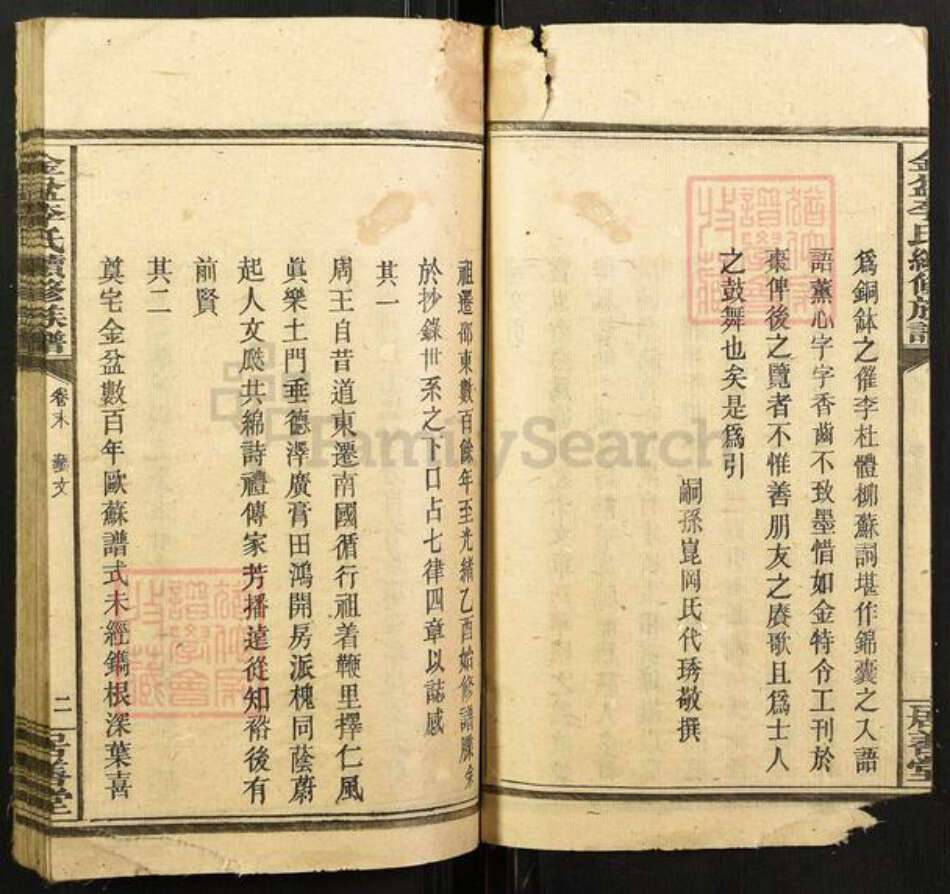 為銅鉢之催李杜體柳蘇詞堪作錦囊之入語
語薰心字字香齒不致墨惜如金特令工刊於
棗俾後之覽者不惟善朋友之賡歌且為士人
之鼓舞也矣是為引
嗣孫崑岡氏代琇敬撰
祖遷邵東數百餘年至光緒乙酉始修譜牒余
於抄錄世系之下口占七律四章以誌感
其一
周王自昔道東遷南國循行祖着鞭里擇仁風
眞樂土門垂德澤廣膏田鴻開房派槐同蔭蔚
起人文瓞共綿詩禮傳家芳播遠從知裕後有
前賢
其二
奠宅金盆數百年歐蘇譜式未經鐫根深葉喜
金盆李氏續修族譜
卷末
藝文
二
居善堂
金盆李氏續修族譜
居善堂
FamilySearch